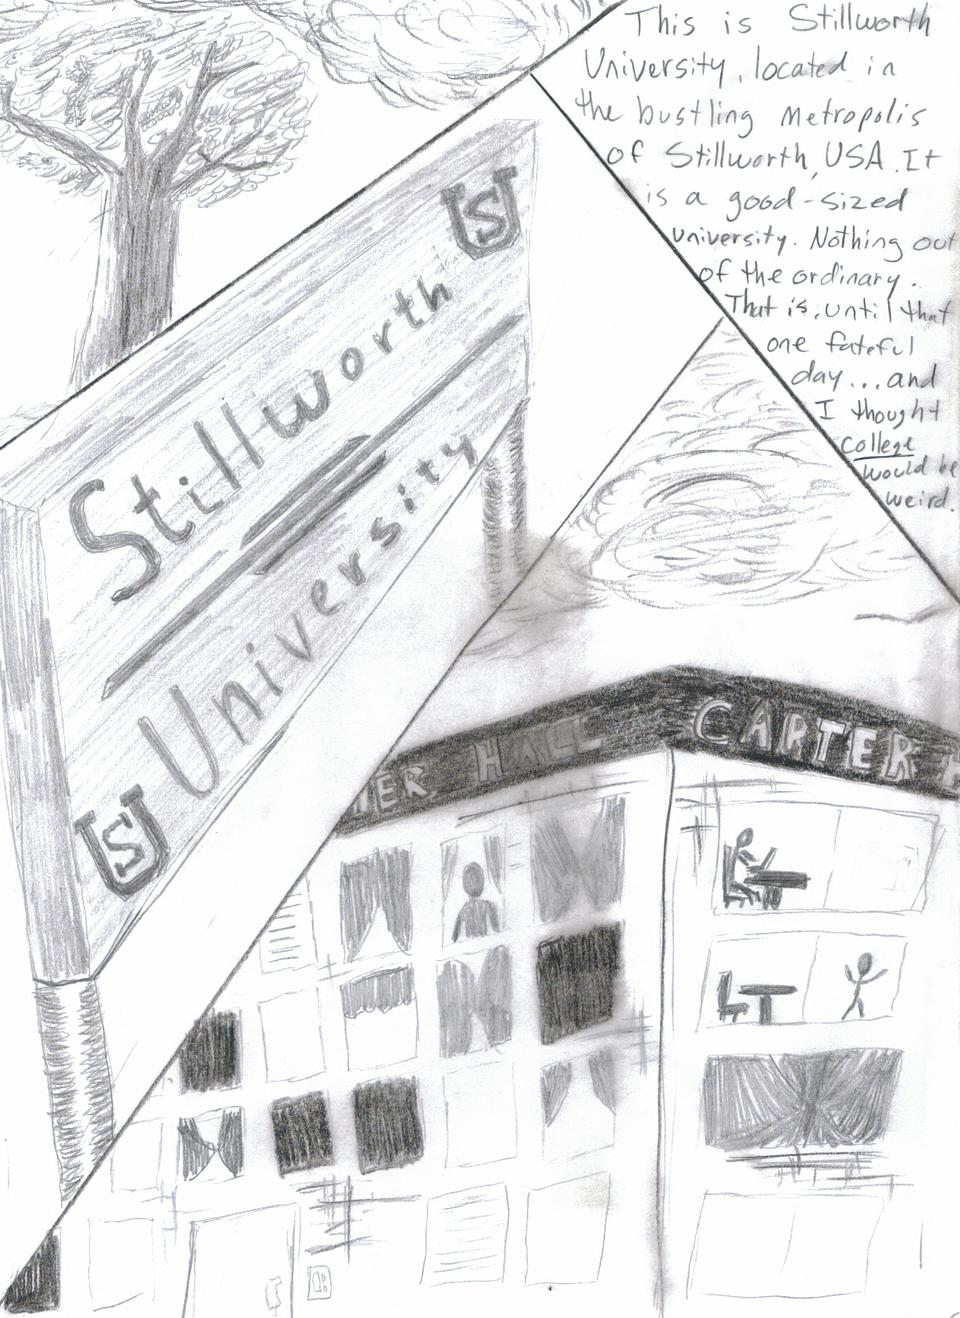 This is Stillworth
University, located in
the bustling Metropolis
of Stillworth, USA. It
is a good-sized
university. Nothing out
of the ordinary.
That is, until that
one fateful
day...and
I thought
college
would be
weird.
US
Stillworth
University
US
TER HALL
CARTER H